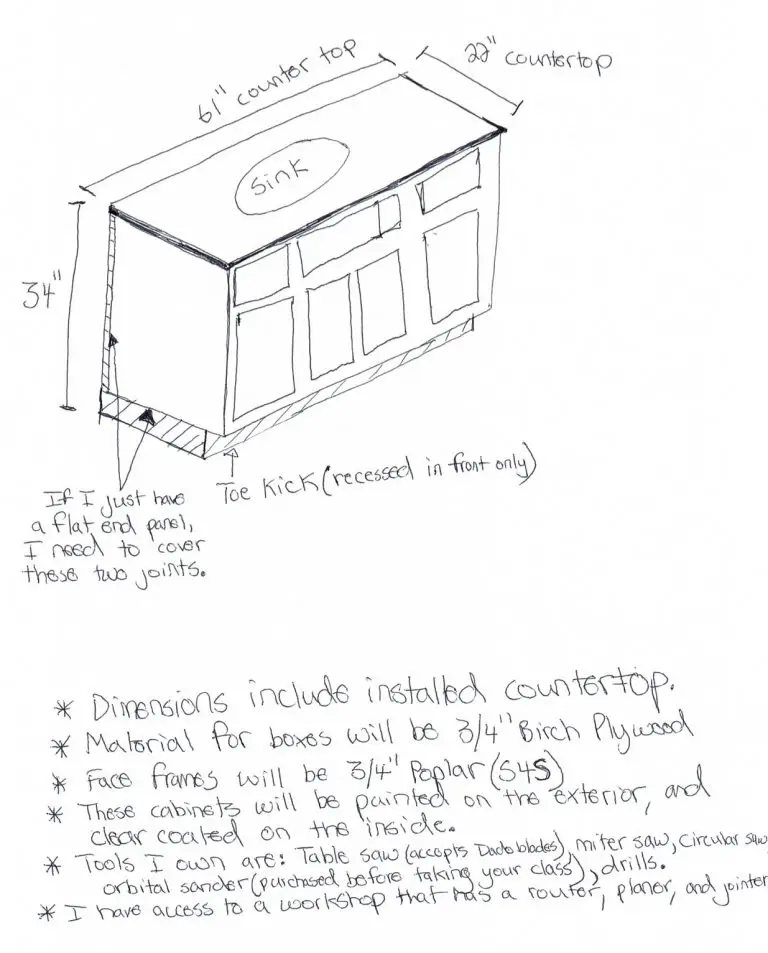 61" counter top
22" countertop
Sink
34"
If I just have
a flat end panel,
I need to cover
these two joints.
Toe Kick (recessed in front only)
* Dimensions include installed countertop.
* Material for boxes will be 3/4" Birch Plywood
* Face frames will be 3/4" Poplar (S4S)
* These cabinets will be painted on the exterior, and
clear coated on the inside.
* Tools I own are: Table saw (accepts Dado blades), miter saw, Circular saw,
orbital sander (purchased before taking your class), drills.
* I have access to a workshop that has a router, planer, and jointer